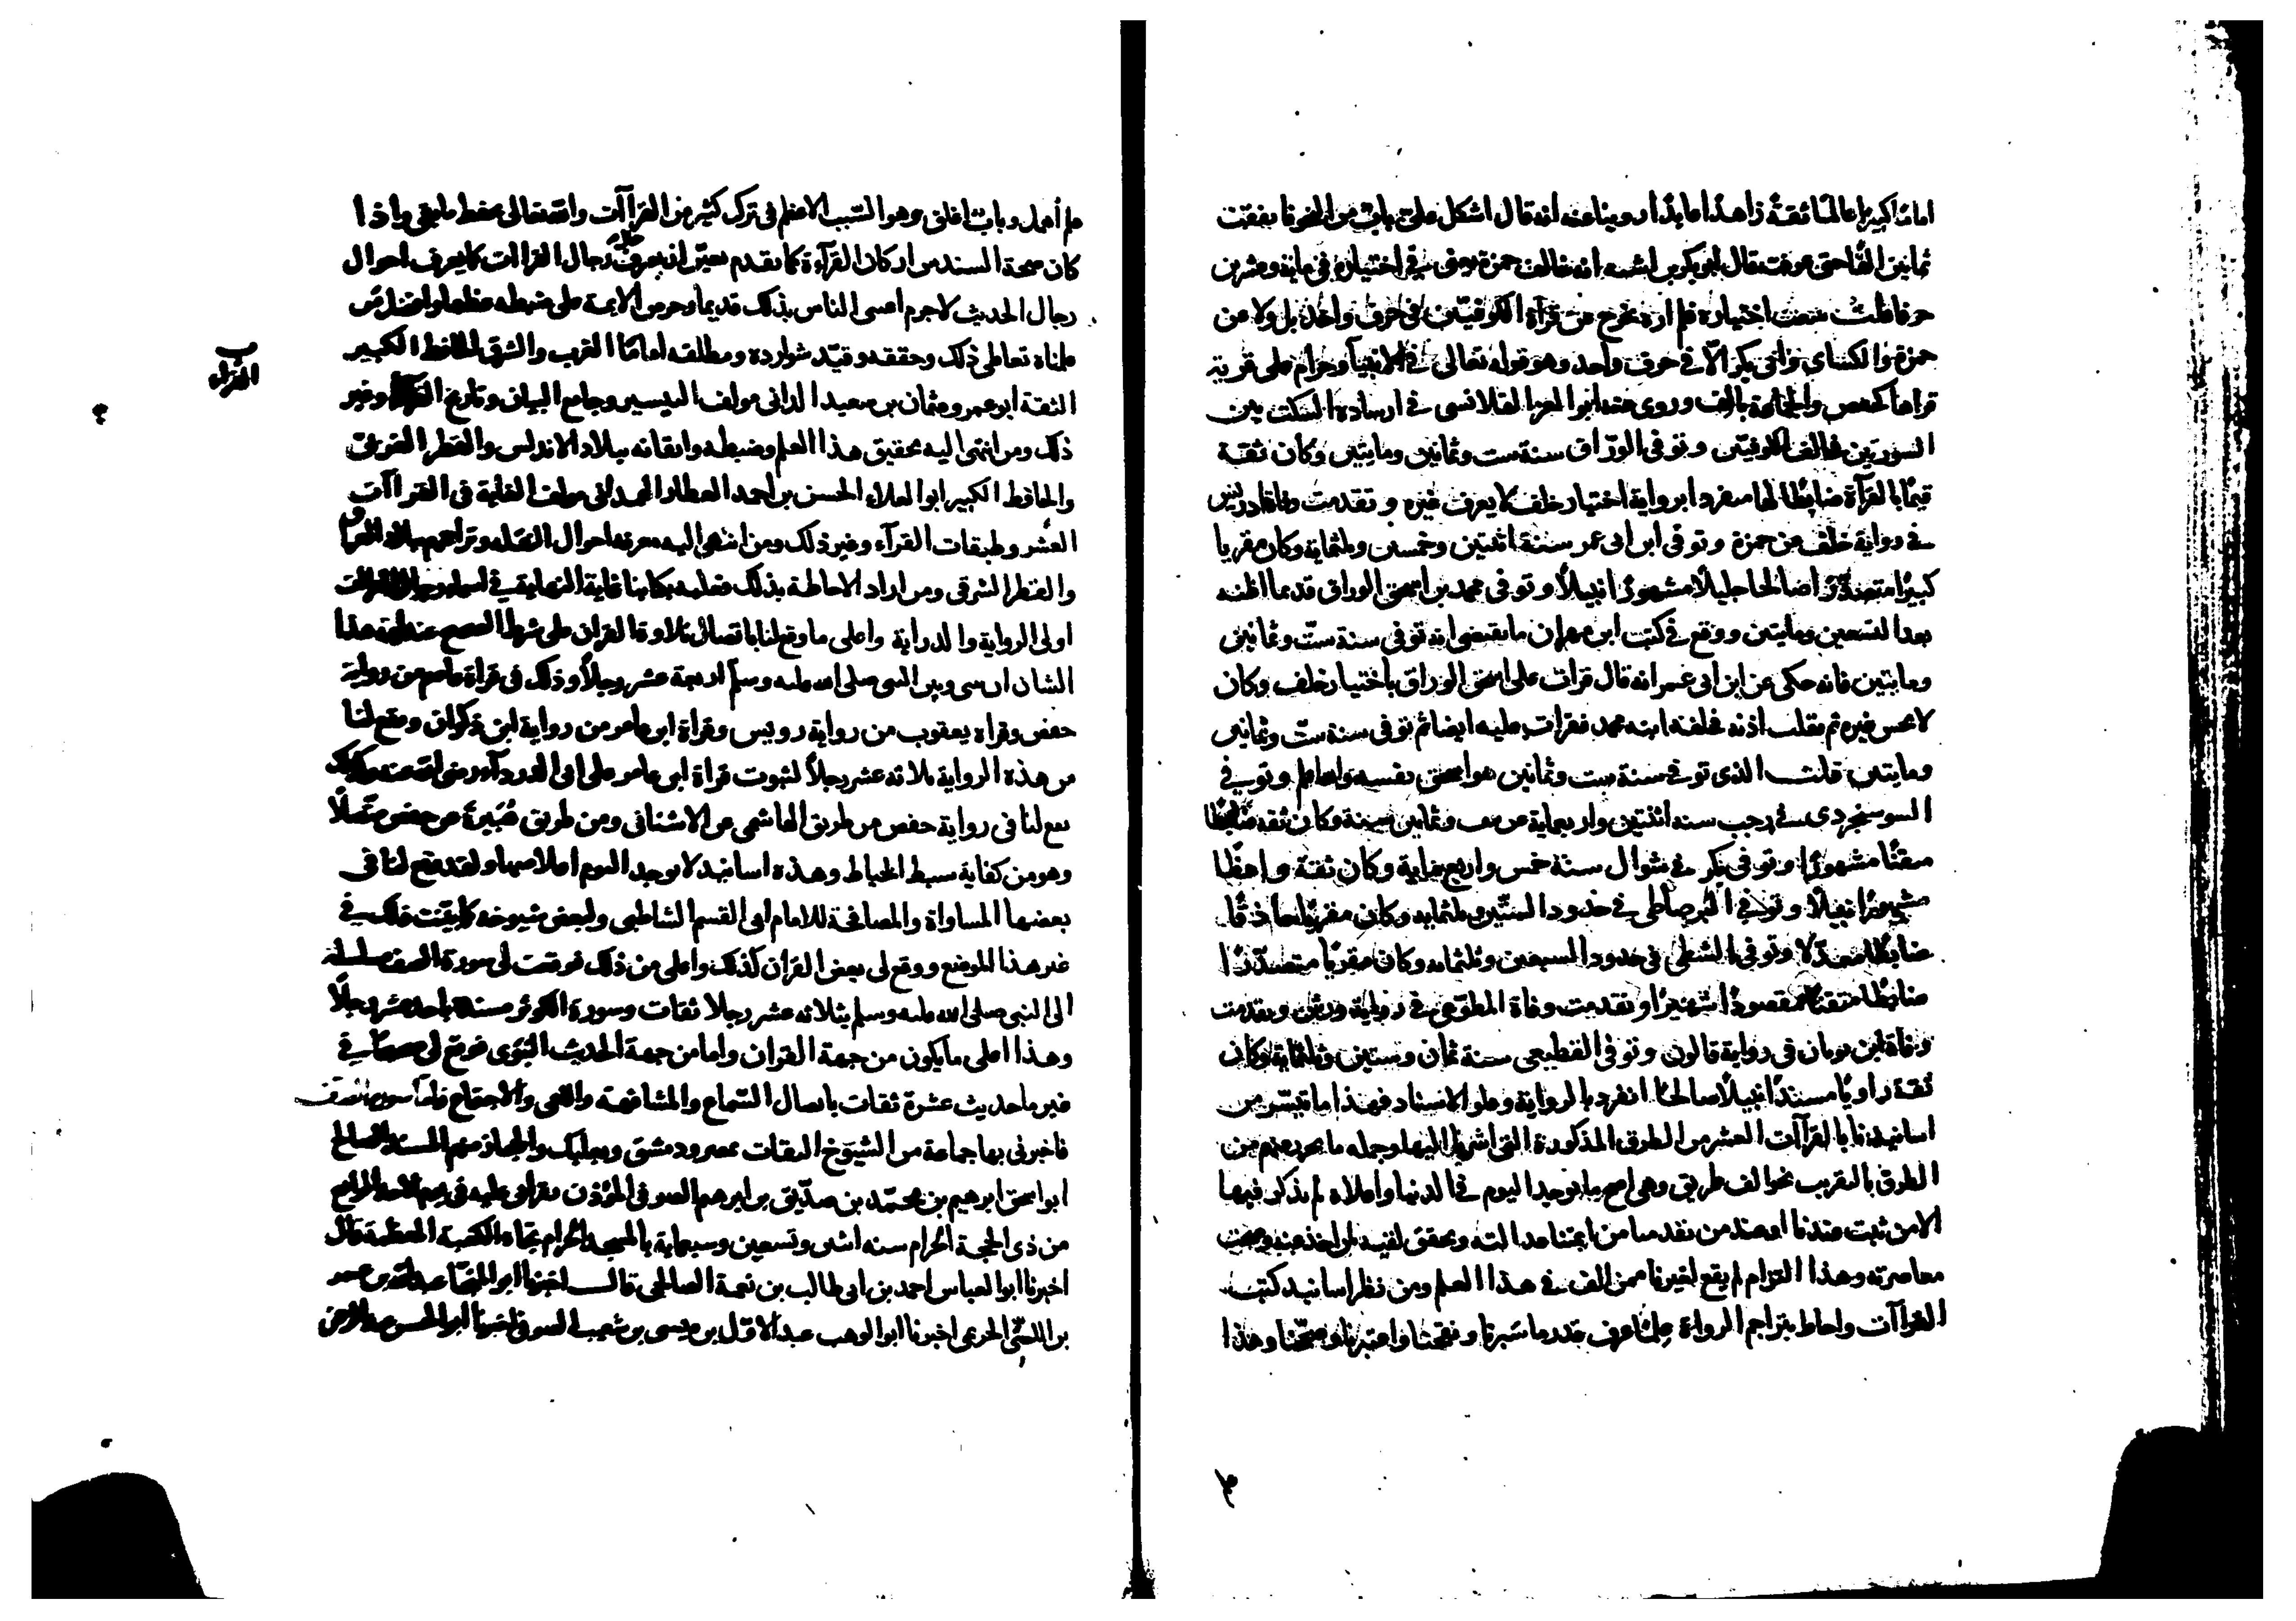 اماما كبيرا عالما ثقة زاهدا عابدا روينا عنه انه قال اشكل على باب من النحو فانفقت
ثمانين الفا حتى عرفته قال ابو بكر بن اشته انه خالف حمزة يعنى في اختياره في ماية وعشرين
حرفا قلت تتبعت اختياره فلم اره يخرج عن قرآة الكوفيين في حرف واحد بل ولا عن
حمزة والكساى وابى بكر الا في حرف واحد وهو قوله تعالى في الانبيآ وحرام على قرية
قراها كحفص والجماعة بالف وروى عنه ابو العز القلانسى في ارشاده السكت بين
السورتين فخالف الكوفيين وتوفى الوراق سنة ست وثمانين ومايتين وكان ثقة
قيما بالقرآة ضابطا لها منفردا برواية اختيار خلف لا يعرف غيره وتقدمت وفاة ادريس
في رواية خلف عن حمزة وتوفى ابن ابى عمر سنة اثنتين وخمسين وثلثماية وكان مقريا
كبيرا متصدرا صالحا جليلا مشهورا نبيلا وتوفى محمد بن اسحق الوراق قديما اظنه
بعد التسعين ومايتين ووقع في كتب ابن مهران ما يقتضى انه توفى سنة ست وثمانين
ومايتين فانه حكى عن ابن ابى عمر انه قال قرات على اسحق الوراق باختيار خلف وكان
لا يحسن غيره ثم ثقلت اذنه فخلفه ابنه محمد فقرات عليه ايضا ثم توفى سنة ست وثمانين
ومايتين قلت الذى توفى سنة ست وثمانين هو اسحق نفسه والله اعلم وتوفى
السوسنجردى في رجب سنه اثنتين واربعماية عن نيف وثمانين سنة وكان ثقه ضابطا
متقنا مشهورا وتوفى بكر في شوال سنة خمس واربعماية وكان ثقة واعظا
مشهورا نبيلا وتوفى البرصاطى في حدود الستين وثلثمايه وكان مقريا حاذقا
ضابطا معدلا وتوفى الشطى في حدود السبعين وثلثمايه وكان مقريا متصدرا
ضابطا متقنا مقصودا شهيرا وتقدمت وفاة المطوعى في رواية ورش وتقدمت
وفاة ابن بويان في رواية قالون وتوفى القطيعى سنة ثمان وستين وثلثماية وكان
ثقة راويا مسندا نبيلا صالحا انفرد بالرواية وعلو الاسناد فهذا ما تيسر من
اسانيدنا بالقراآت العشر من الطرق المذكورة التى اشرنا اليها وجمله ما تحرر عنهم من
الطرق بالتقريب نحو الف طريق وهى اصح ما يوجد اليوم في الدنيا واعلاه لم نذكر فيها
الا من ثبت عندنا او عند من تقدمنا من ايمتنا عدالته وتحقق لقيه لمن اخذ عنه وصحت
معاصرته وهذا التزام لم يقع لغيرنا ممن الف في هذا العلم ومن نظر اسانيد كتب
القراآت واحاط بتراجم الرواة علما عرف قدر ما سبرنا ونقحنا واعتبرنا وصححنا وهذا
علم أهمل وباب اغلق وهو السبب الاعظم في ترك كثير من القراآت والله تعالى يحفظ ما بقى واذا
كان صحة السند من اركان القرآءة كما تقدم تعين ان يعرف حال رجال القراات كما يعرف احوال
رجال الحديث لا جرم اعتنى الناس بذلك قديما وحرص الايمة على ضبطه عظيما وافضل من
علمناه تعاطى ذلك وحققه وقيد شوارده ومطلقه اماما الغرب والشرق الحافظ الكبير
الثقة ابو عمرو عثمان بن سعيد الدانى مولف التيسير وجامع البيان وتاريخ القراء وغير
القراء
ذلك ومن انتهى اليه تحقيق هذا العلم وضبطه واتقانه ببلاد الاندلس والقطر الغربى
والحافظ الكبير ابو العلاء الحسن بن احمد العطار الهمدانى مولف الغاية في القراآت
العشر وطبقات القرآء وغير ذلك ومن انتهى اليه معرفه احوال النقله وتراجمهم ببلاد العراق
والقطر الشرقى ومن اراد الاحاطة بذلك فعليه بكتابنا غاية النهاية في اسماء رجال القراات
اولى الرواية والدراية واعلى ما وقع لنا باتصال تلاوة القران على شرط الصحيح عند ايمة هذا
الشان ان بينى وبين النبى صلى الله عليه وسلم اربعة عشر رجلا وذلك في قراة عاصم من رواية
حفص وقراه يعقوب من رواية رويس وقراة ابن عامر من رواية ابن ذكوان ووقع لنا
من هذه الرواية ثلاثه عشر رجلا لثبوت قراة ابن عامر على ابى الدردآء رضى الله عنه وكذلك
يقع لنا في رواية حفص من طريق الهاشمى عن الاشنانى ومن طريق هبيرة عن حفص متصلا
وهو من كفاية سبط الخياط وهذه اسانيد لا يوجد اليوم اعلا منها ولقد وقع لنا في
بعضها المساواة والمصافحة للامام ابى القسم الشاطبى ولبعض شيوخه كما بينت ذلك في
غير هذا الموضع ووقع لى بعض القران كذلك واعلى من ذلك فوقعت لى سورة الصف مسلسلة
الى النبى صلى الله عليه وسلم بثلاثه عشر رجلا ثقات وسورة الكوثر مسندة باحد عشر رجلا
وهذا اعلى ما يكون من جهة القران واما من جهة الحديث النبوى فوقع لى صحيحا في
غير ما حديث عشرة ثقات باتصال السماع والمشافهة واللقى والاجتماع فاما سورة الصف
فاخبرنى بها جماعة من الشيوخ الثقات بمصر ودمشق وبعلبك والحجاز منهم المسند الصالح
ابو اسحق ابرهيم بن محمد بن صديق بن ابرهيم الصوفى المؤذن بقراتى عليه في يوم الاحد الرابع
من ذى الحجة الحرام سنه اثنين وتسعين وسبعماية بالمسجد الحرام تجاه الكعبة المعظمة قال
اخبرنا ابو العباس احمد بن ابى طالب بن نعمة الصالحى قال اخبرنا ابو المنجا عبد الله بن عمر
بن اللتى الحريمى اخبرنا ابو الوقت عبد الاول بن عيسى بن شعيب الصوفى اخبرنا ابو الحسن عبد الرحمن